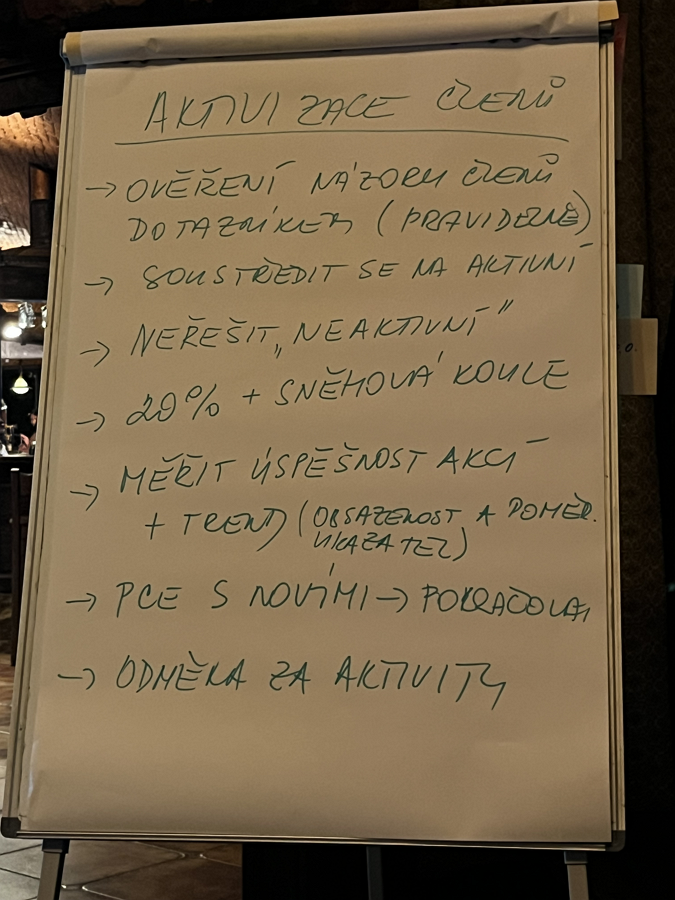 AKTIVIZACE ČLENŮ
→ OVĚŘENÍ NÁZORU ČLENŮ
DOTAZNÍKEM (PRAVIDELNĚ)
→ SOUSTŘEDIT SE NA AKTIVNÍ
→ NEŘEŠIT „NEAKTIVNÍ"
→ 20% + SNĚHOVÁ KOULE
→ MĚŘIT ÚSPĚŠNOST AKCÍ
+ TREND (OBSAZENOST A POMĚR.
UKAZATEL)
→ PCE S NOVÝMI → POKRAČOVAT
→ ODMĚNA ZA AKTIVITY